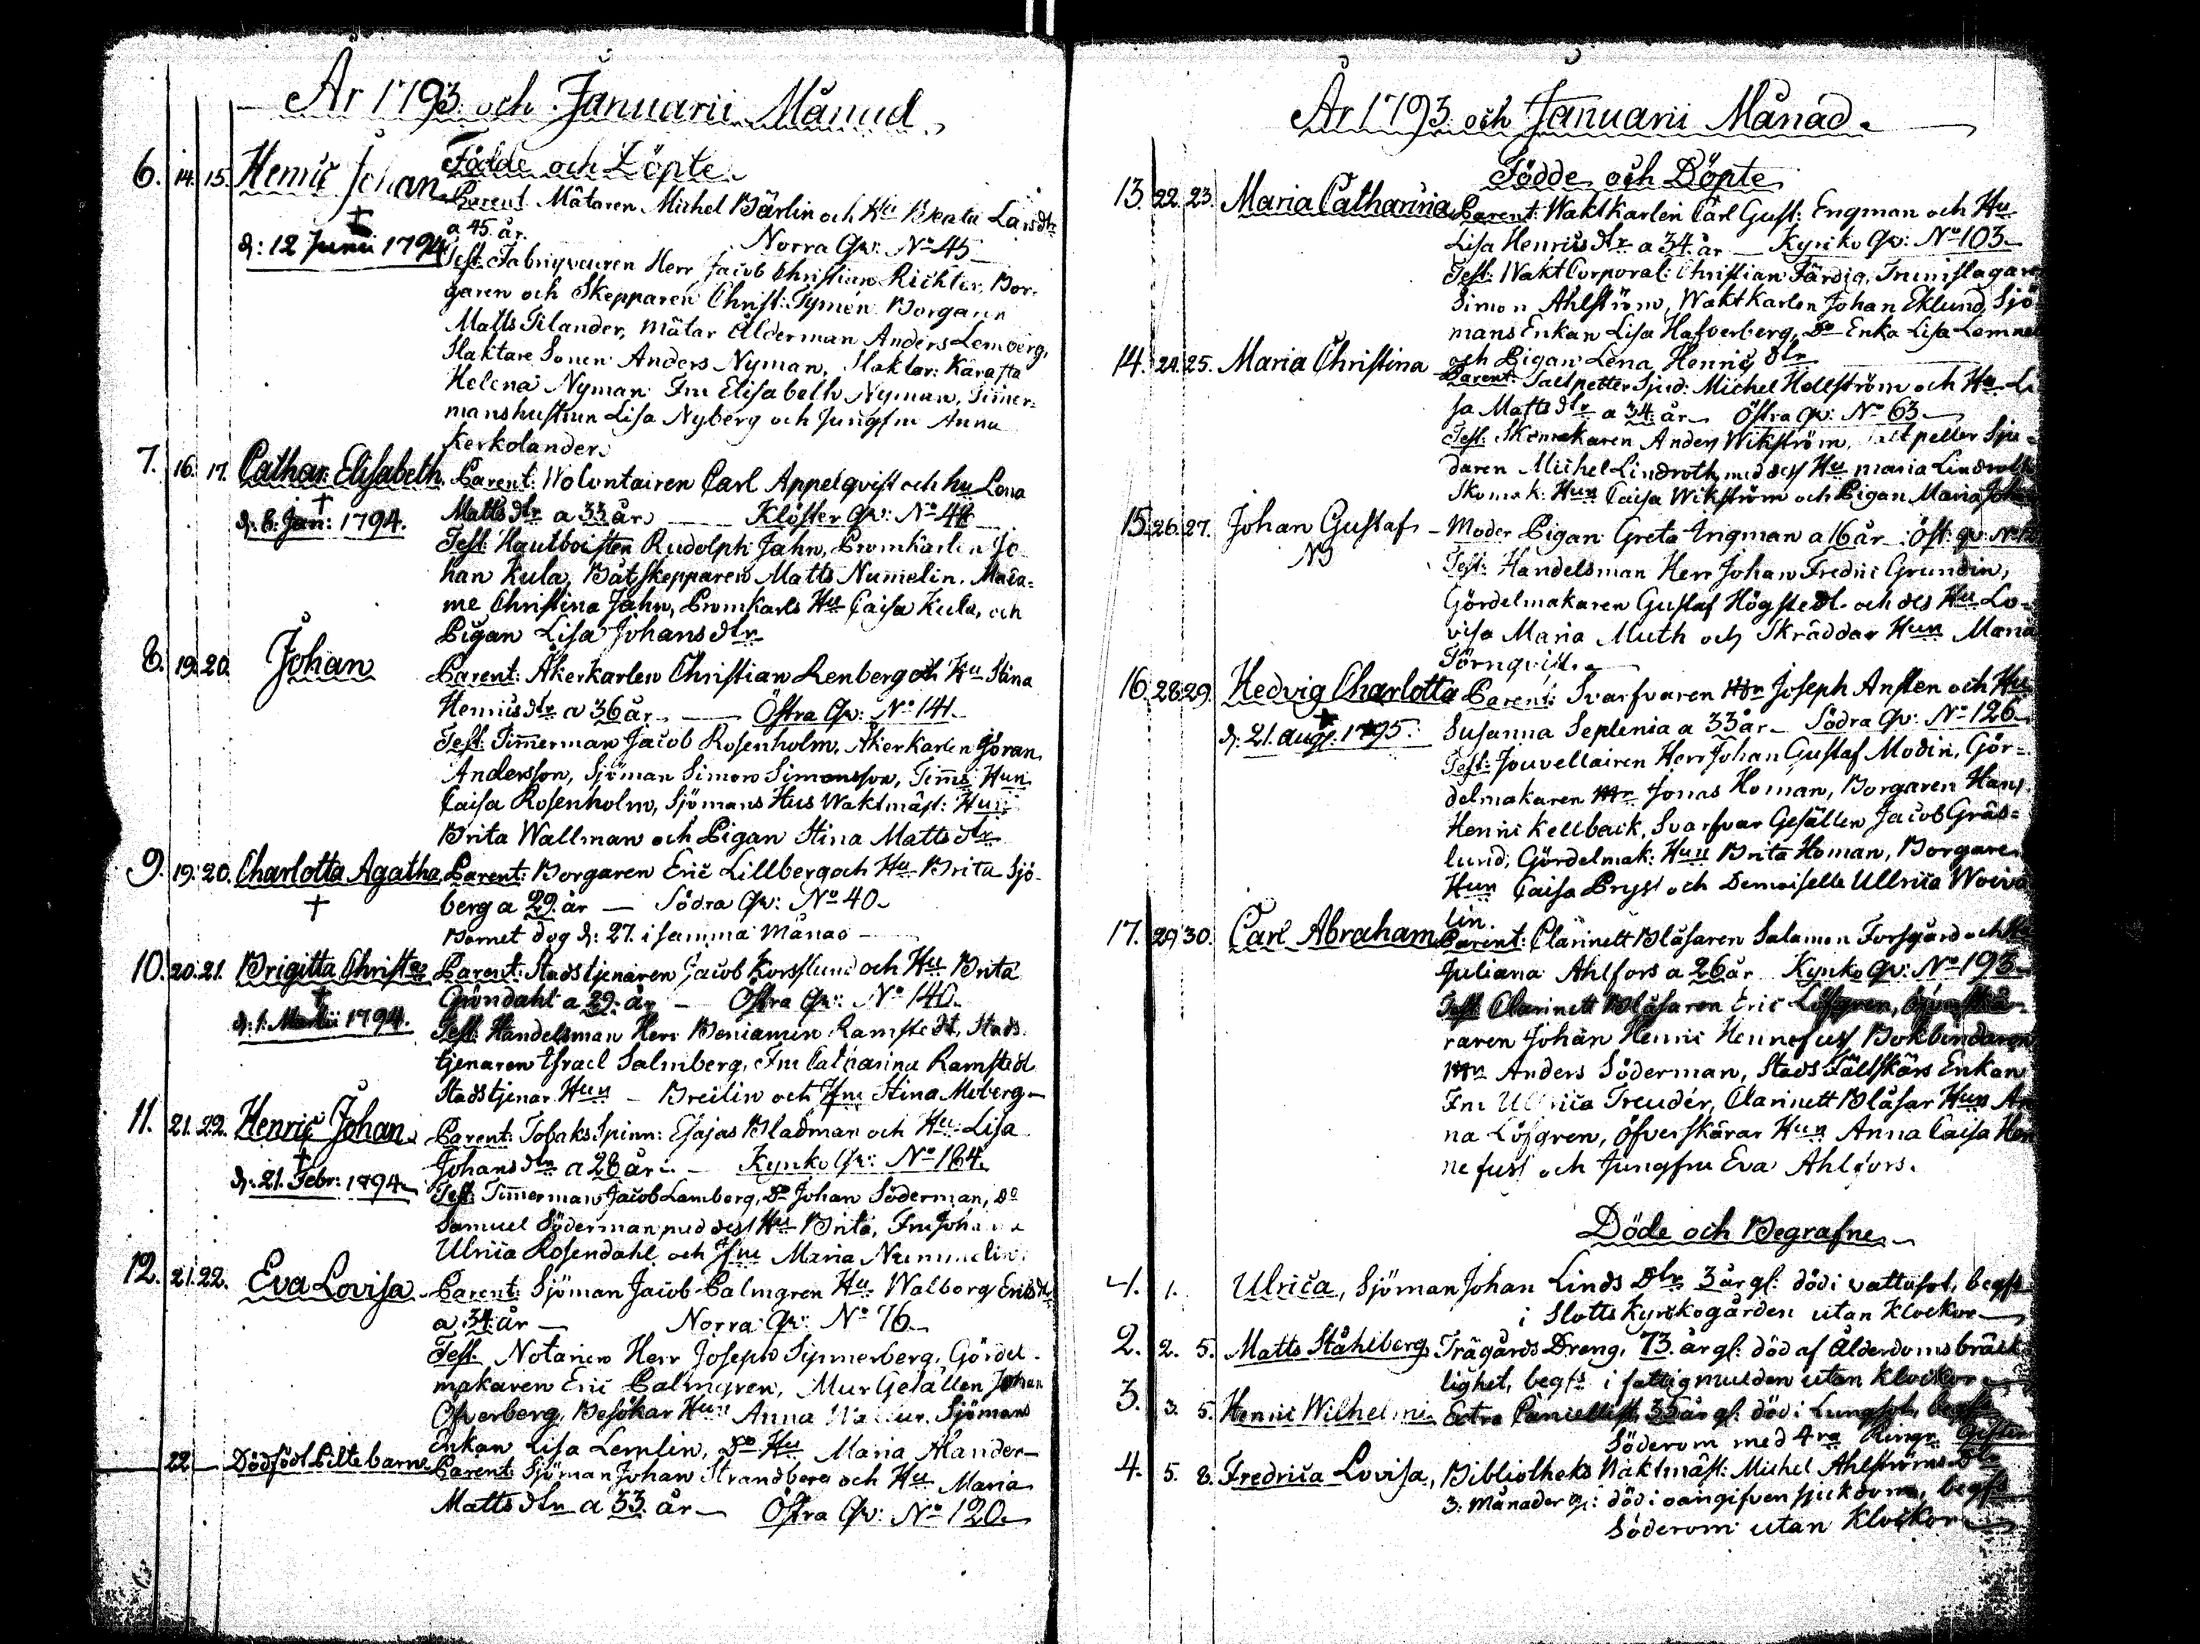 År 1793 och Januarii Månad
Födde och Döpte
6. 14. 15. Henric Johan Parent: Mätaren Michel Bärlin och Hu Beata Larsdtr
† d: 12 Junii 1794 a 45 år. Norra Qv: No 45
Test: Fabriqveuren Herr Jacob Christian Richter, Bor-
garen och Skepparen Christ: Tymen Borgaren
Matts Tilander, Mätar Ålderman Anders Lemberg,
Slaktare Sonen Anders Nyman, Slaktar:
Helena Nyman Fru Elisabeth Nyman, Timer-
manshustrun Lisa Nyberg och Jungfru Anna
Kerkolander.
7. 16. 17. Cathar: Elisabeth Parent: Volontairen Carl Appelqvist och hu Lena
† d: 8: Jan: 1794. Matts dtr a 33 år Klöster Qv: No 44
Test: Hautboisten Rudolph Jahn, Promkarlen Jo-
han Kula, Båtskepparen Matts Numelin, Mada-
me Christina Jahn, Promkarls Hu Caisa Kula, och
Pigan Lisa Johans dtr
8. 19. 20. Johan Parent: Åkerkarlen Christian Renberg och Hu Stina
Henricsdtr a 36 år Östra Qv: No 141
Test: Timmerman Jacob Rosenholm, Åkerkarlen Göran
Andersson, Sjöman Simon Simonsson, Timms: Hun
Caisa Rosenholm, Sjömans Hus Waktmäst: Hun
Brita Wallman och Pigan Stina Matts dtr
9. 19. 20. Charlotta Agatha Parent: Borgaren Eric Lillberg och Hu Brita Sjö-
† berg a 29 år Södra Qv: No 40
Barnet dog d: 27. i samma Månad
10. 20. 21. Brigitta Christ: Parent: Stadstjenaren Jacob Korsslund och Hu Brita
† d: 1. Martii 1794. Gröndahl a 29 år Östra Qv: No 140
Test: Handelsman Herr Beniamin Ramstedt, Stads
tjenaren Israel Salmberg, Fru Catharina Ramstedt
Stadstjenar Hun Breilin och Jfru Stina Moberg
11. 21. 22. Henric Johan Parent: Tobaks Spinn: Esajas Bladman och Hu: Lisa
† d: 21. Febr: 1794 Johansdtr a 28 år Kyrko Qv: No 164
Test: Timmerman Jacob Lamberg, Do Johan Söderman, Do
Samuel Söderman med dess Hu Brita, Fru Joh
Ulrica Rosendahl och Jfru Maria Nummelin
12. 21. 22. Eva Lovisa Parent: Sjöman Jacob Palmgren Hu Walborg Ericsdtr
a 34 år Norra Qv: No 76
Test. Notarien Herr Joseph Simmerberg, Gördel-
makaren Eric Palmgren, Mur Gesällen Johan
Öfverberg, Besökar Hun Anna Sjömans
Enkan Lisa Lemlin, Do Hu Maria Ålander
22 Dödfödt Piltebarn Parent: Sjöman Johan Strandberg och Hu Maria
Matts dtr a 33 år Östra Qv: No 120
År 1793 och Januarii Månad.
Födde och Döpte
13. 22. 23. Maria Catharina Parent: Waktkarlen Carl Gust: Engman och Hu
Lisa Henricsdtr a 34 år Kyrko Qv: No 103
Test: Wakt Corporal: Christian Färdig, Trumslagaren
Simon Ahlström, Waktkarlen Johan Eklund, Sjö-
mans Enkan Lisa Hafverberg, Do Enka Lisa
och Pigan Lena Henrics dtr
14. 24. 25. Maria Christina Parent: Saltpetter Sjud: Michel Hellström och Hu Li-
sa Matts dtr a 34 år Östra Qv: No 63
Test: Skomakaren Anders Wikström, Saltpetter Sju-
daren Michel Lindroth med dess Hu Maria Lindroth
Skomak: Hun Caisa Wikström och Pigan Maria
15. 26. 27. Johan Gustaf Moder Pigan Greta Ingman a 16 år Öst: qv: No
NB Test: Handelsman Herr Johan Fredric Grundin,
Gördelmakaren Gustaf Högstedt och des Hu Lo-
visa Maria Muth och Skräddar Hun Maria
Törnqvist.
16. 28. 29. Hedvig Charlotta Parent: Svarfvaren Mr Joseph Ansten och Hu
† d: 21. aug: 1795. Susanna Seplenia a 33 år Södra Qv: No 126
Test: Jouvellairen Herr Johan Gustaf Modin, Gör-
delmakaren Mr Jonas Homan, Borgaren Hans
Henric Kellback, Svarfvar Gesällen Jacob Gräs-
lund, Gördelmak: Hun Brita Homan, Borgare
Hun Caisa Pryss och Demoiselle Ullrica Woiva-
lin.
17. 29. 30. Carl Abraham Parent: Clarinett Blåsaren Salamon Forsgård och Hu
Juliana Ahlfors a 26 år Kyrko Qv: No 193
Test: Clarinett Blåsaren Eric Löfgren,
raren Johan Henric Hennefuss Bokbindaren
Mr Anders Söderman, Stads Fältskärs Enkan
Fru Ullrica Treuder, Clarinett Blåsar Hun An
na Löfgren, Öfverskärar Hun Anna Caisa Hen
nefuss och Jungfru Eva Ahlfors.
Döde och Begrafne
1. 1. Ulrica, Sjöman Johan Linds Dtr 3 år gl: död i vattusot, begfs
i Slotts Kyrkogården utan Klockor
2. 2. 5. Matts Ståhlberg Trägårds Dreng, 73. år gl: död af Ålderdoms bräck-
lighet, begfs i fattigmulden utan Klockor
3. 3. 5. Henric Wilhelm Extra Cancellist, 35 år gl: död i Lungsot, begfs
Söderom med 4ra Ringn:
4. 5. 8. Fredrica Lovisa, Bibliotheks Waktmäst: Michel Ahlströms Dtr
3. Månader gl: död i oangifven sjukdom, begfs
Söderom utan Klockor